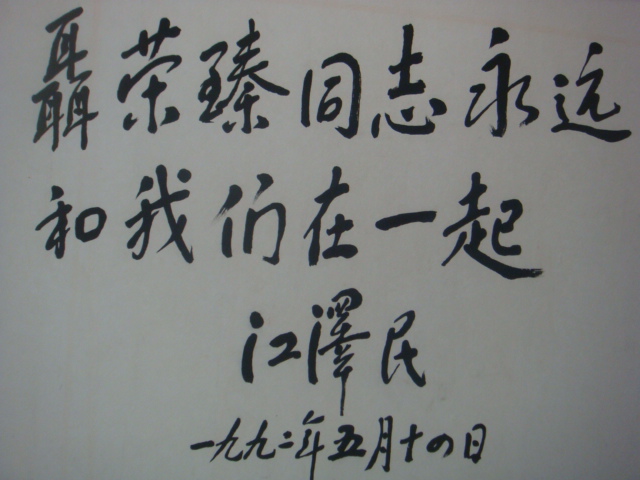 聶荣臻同志永远
和我们在一起
江澤民
一九九二年五月十四日